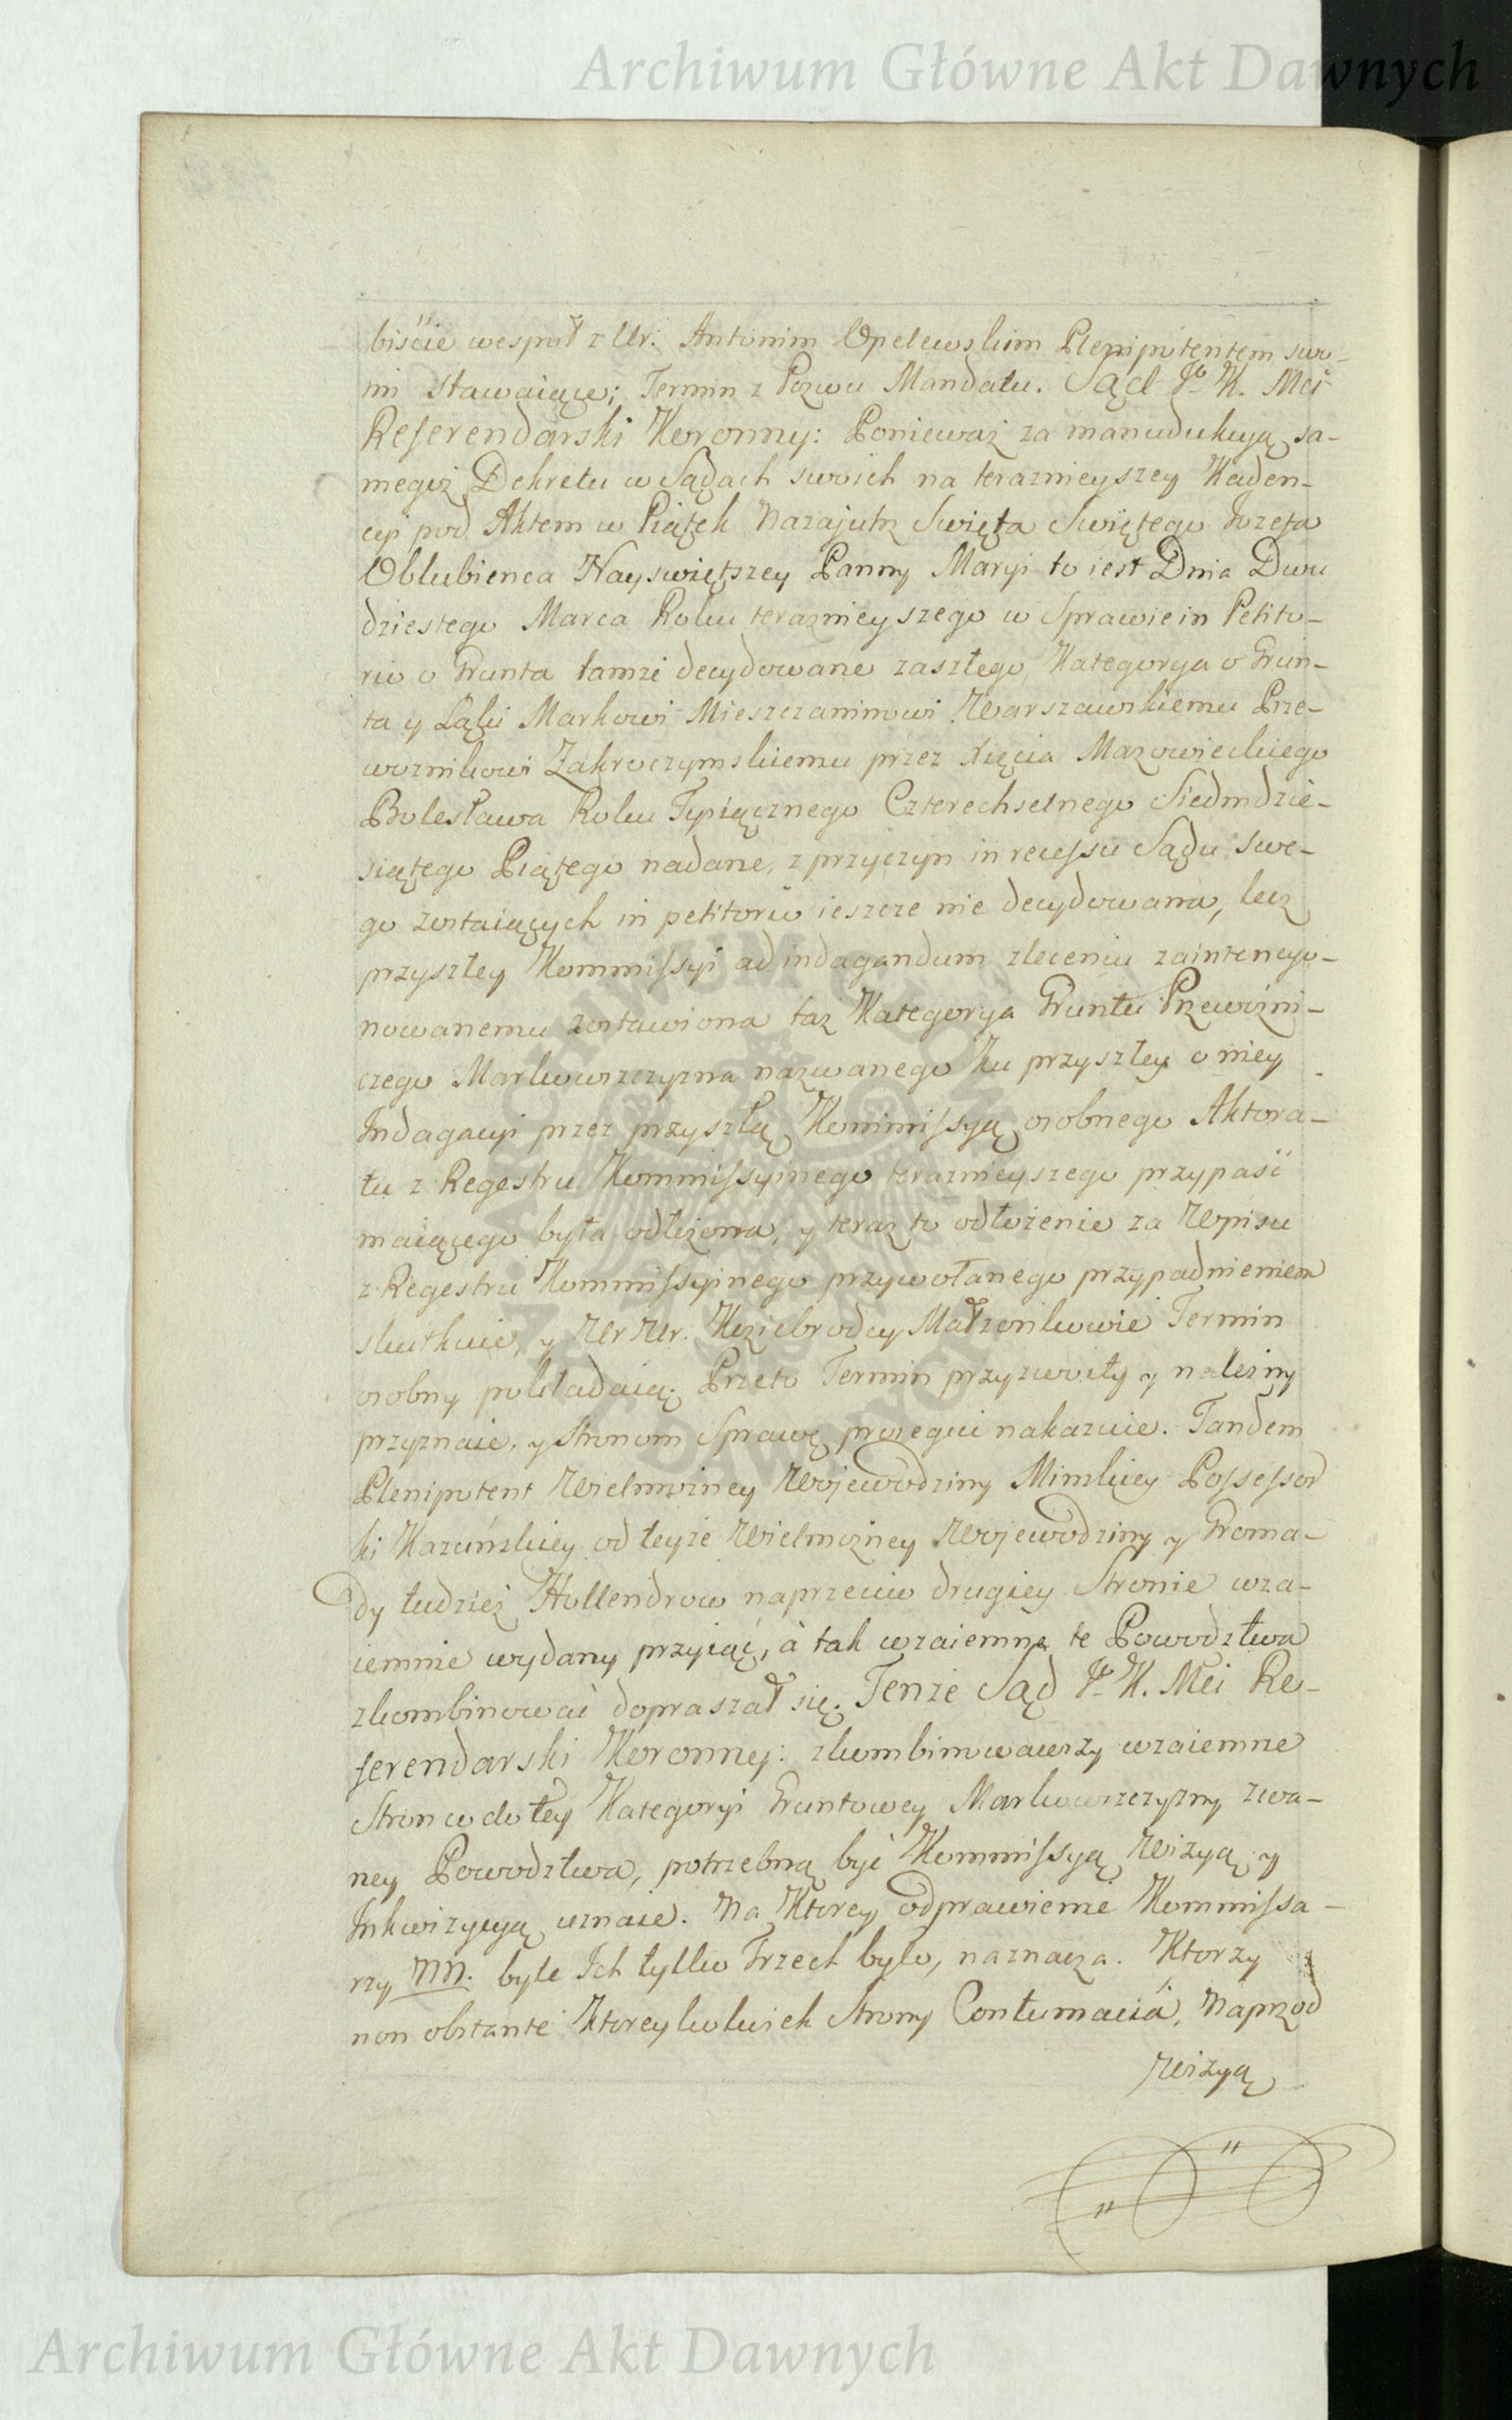 Archiwum Główne Akt Dawnych
biście wespół z Ur. Antonim Opelewskim Plenipotentem swo-
im stawaiące; Termin z Pozwu Mandatu. Sąd Jo K. Mci
Referendarski Koronny: Ponieważ za manudukcyą sa-
megoż Dekretu w Sądach swoich na teraznieyszey Kaden-
cyi pod Aktem w Piątek Nazajutrz Swięta Swiętego Jozefa
Oblubienca Nayswiętszey Panny Maryi to iest Dnia Dwu
dziestego Marca Roku teraznieyszego w Sprawie in Petito-
rio o Grunta tamże decydowane zaszłego, Kategorya o Grun-
ta y Łąki Markowi Mieszczaninowi Warszawskiemu Prze-
woznikowi Zakroczymskiemu przez Xięcia Mazowieckiego
Bolesława Roku Tysiącznego Czterechsetnego Siedmdzie-
siątego Piątego nadane, z przyczyn in recessu Sądu swe-
go zostaiących in petitorio ieszcze nie decydowana, lecz
przyszłey Kommissyi ad indagandum zleceniu zaintencyo-
nowanemu zostawiona taż Kategorya Gruntu Przewozni-
czego Markowszczyzna nazwanego Ku przyszłey o niey
Indagacyi przez przyszłą Kommissyą osobnego Aktora-
tu z Regestru Kommissyinego teraznieyszego przypaść
maiącego była odłożona, y teraz to odłożenie za Wpisu
z Regestru Kommissyinego przywołanego przypadnieniem
skutkuie, y Ur Ur. Koziebrodcy Małżonkowie Termin
osobny pokładaią; Przeto Termin przyzwoity y należny
przyznaie, y Stronom Sprawę prosequi nakazuie. Tandem
Plenipotent Wielmożney Wojewodziny Minskiey Possessor
ki Kazuńskiey od teyże Wielmożney Wojewodziny y Groma-
dy tudzież Hollendrow naprzeciw drugiey Stronie wza-
iemnie wydany przyiąć, à tak wzaiemne te Powodztwa
zkombinować dopraszał się. Tenże Sąd Jo K. Mci Re-
ferendarski Koronny: zkombinowawszy wzaiemne
Stron w do tey Kategoryi Gruntowey Markowszczyzny zwa-
ney Powodztwa, potrzebną być Kommissyą Wizyą y
Inkwizycyą uznaie. Na Ktorey odprawienie Kommissa-
rzy NN. byle Ich tylko Trzech było, naznacza. Ktorzy
non obstante Ktoreykolwiek Strony Contumaciâ, Naprzod
Wizyą
Archiwum Główne Akt Dawnych